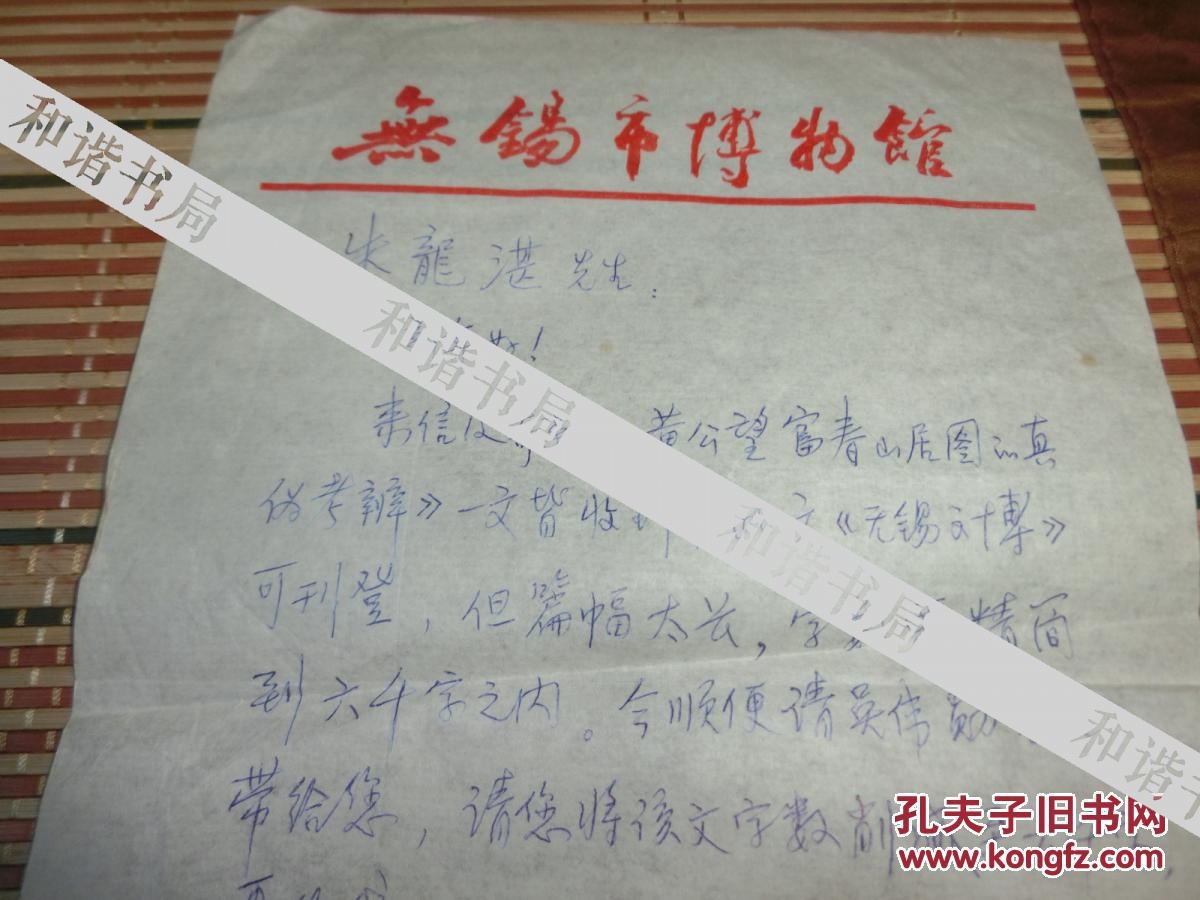 無錫市博物館
朱龍湛先生：
来信及 黄公望富春山居图的真
伪考辨》一文皆收 《无锡文博》
可刊登，但篇幅太长，字 精简
到六千字之内。今顺便请吴伟勋
带给您，请您将该文字数削
和谐书局
和谐书局
和谐书局
和谐
孔夫子旧书网
www.kongfz.com